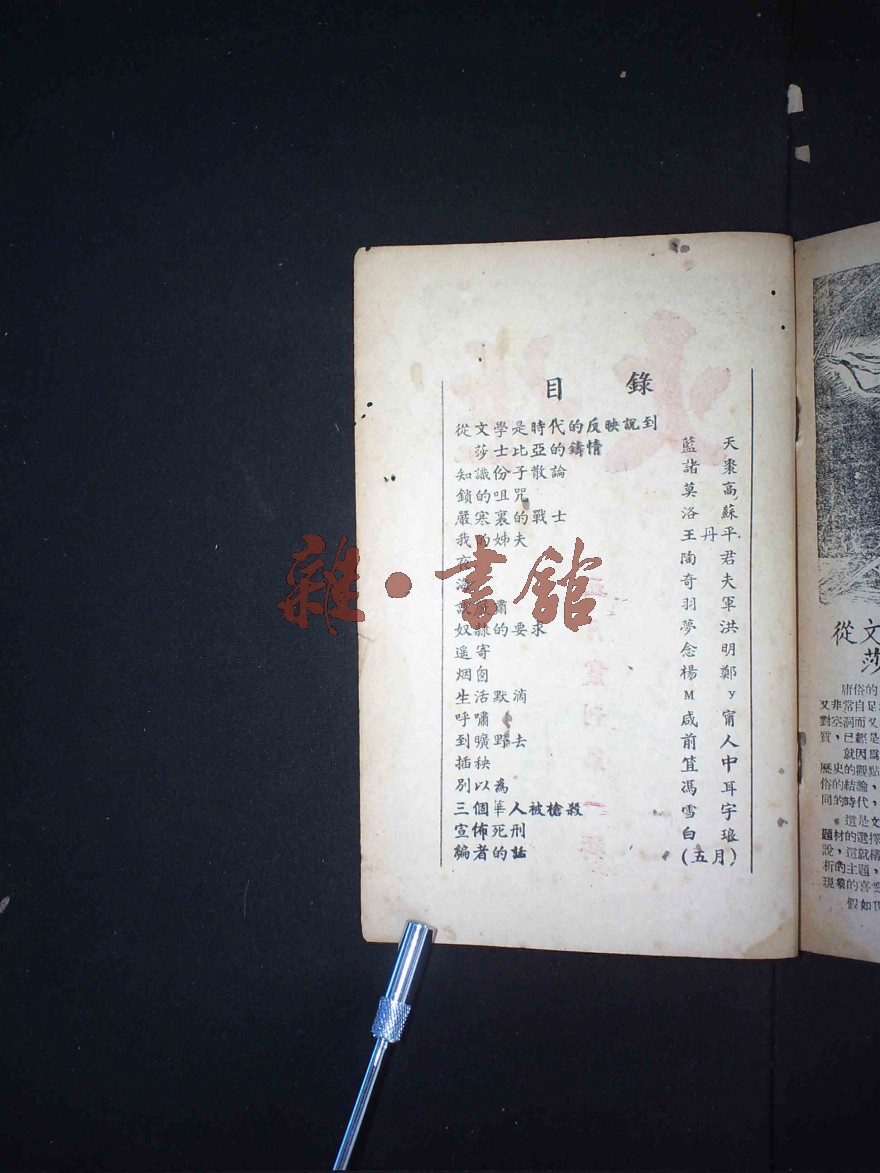 目 錄
從文學是時代的反映說到
莎士比亞的鑄情 藍 天
知識份子散論 諸 棗
鎖的咀咒 莫 高
嚴寒裏的戰士 洛 蘇
我的姊夫 王丹平
陶 君
奇 夫
羽 軍
奴隸的要求 夢 洪
遥寄 念 明
烟囱 楊 鄭
生活默滴 M y
呼嘯 咸 甯
到曠野去 前 人
插秧 笡 中
別以為 馮 耳
三個華人被槍殺 雪 宇
宣佈死刑 白 琅
編者的話 (五月)
雜·書館
從文
莎
庸俗的
又非常自足
對空洞而又
質，已經是
就因為
歷史的觀點
俗的結論，
同的時代，
這是文
題材的選擇
說，這就構
析的主題，
現象的喜
假如